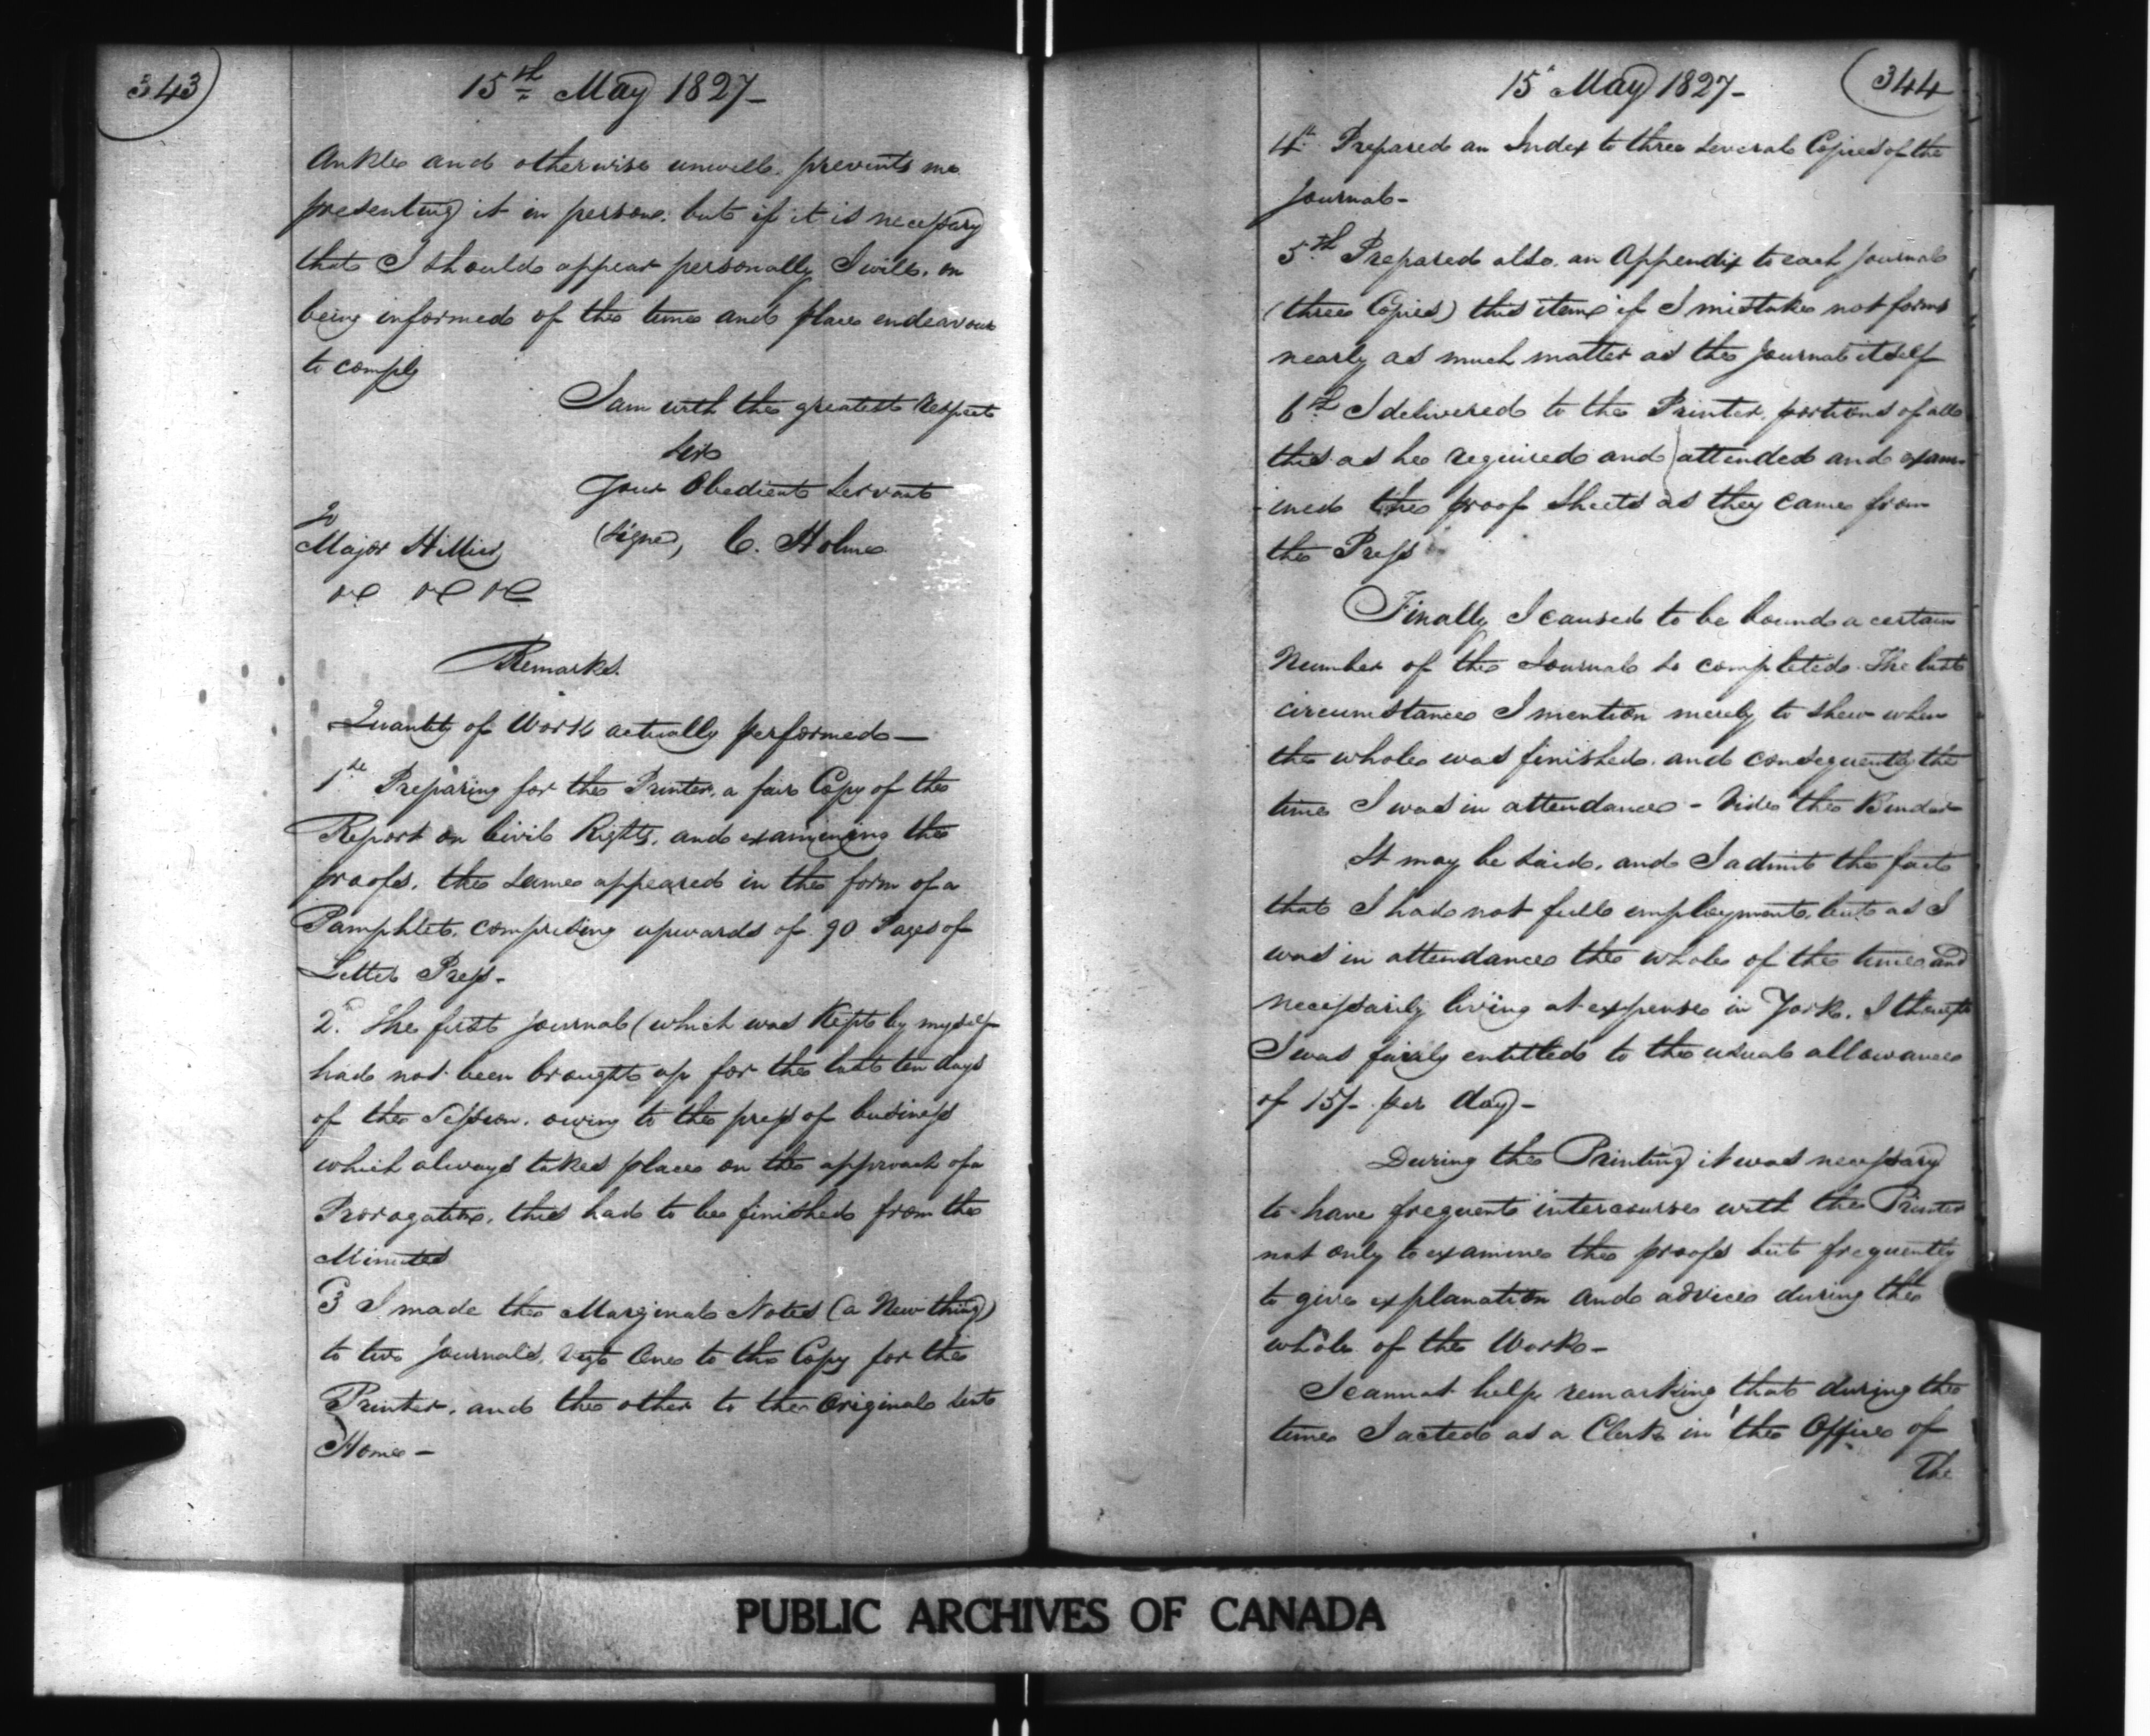 343
15th May 1827-
Ankle and otherwise unwell, prevents me
presenting it in person, but if it is necessary
that I should appear personally I will, on
being informed of the time and place endeavour
to comply
I am with the greatest respect
Sir
Your Obedient Servant
(signed, C. Holme
To
Major Hillier
&c &c &c
Remarks.
Quantity of Work actually performed—
1st Preparing for the Printer, a fair Copy of the
Report on Civil Rights, and examining the
proofs, the same appeared in the form of a
Pamphlet, comprising upwards of 90 Pages of
Letter Press-
2d. The first Journal (which was Kept by myself
had not been brought up for the last ten days
of the Session, owing to the press of business
which always takes place on the approach of a
Prorogation, this had to be finished from the
Minutes
3 I made the Marginal Notes (a New thing)
to two Journals, One to the Copy for the
Printer, and the other to the Original sent
Home—
15 May 1827-
344
4th Prepared an Index to three several Copies of the
Journal-
5th Prepared also, an Appendix to each Journal
(three Copies) this item if I mistake not forms
nearly as much matter as the Journal itself
6th I delivered to the Printer, portions of all
this as he required and attended and exam-
-ined the proof Sheets as they came from
the Press
Finally I caused to be bound a certain
Number of the Journals so completed. The last
circumstance I mention merely to shew when
the whole was finished, and consequently the
time I was in attendance - Vide the Binder
It may be said, and I admit the fact
that I had not full employment, but as I
was in attendance the whole of the time and
necessarily living at expense in York, I thought
I was fairly entitled to the usual allowance
of 15/- per day-
During the Printing it was necessary
to have frequent intercourse with the Printer
not only to examine the proofs but frequently
to give explanation and advice during the
whole of the Work-
I cannot help remarking that during the
time I acted as a Clerk in the Office of
The
PUBLIC ARCHIVES OF CANADA